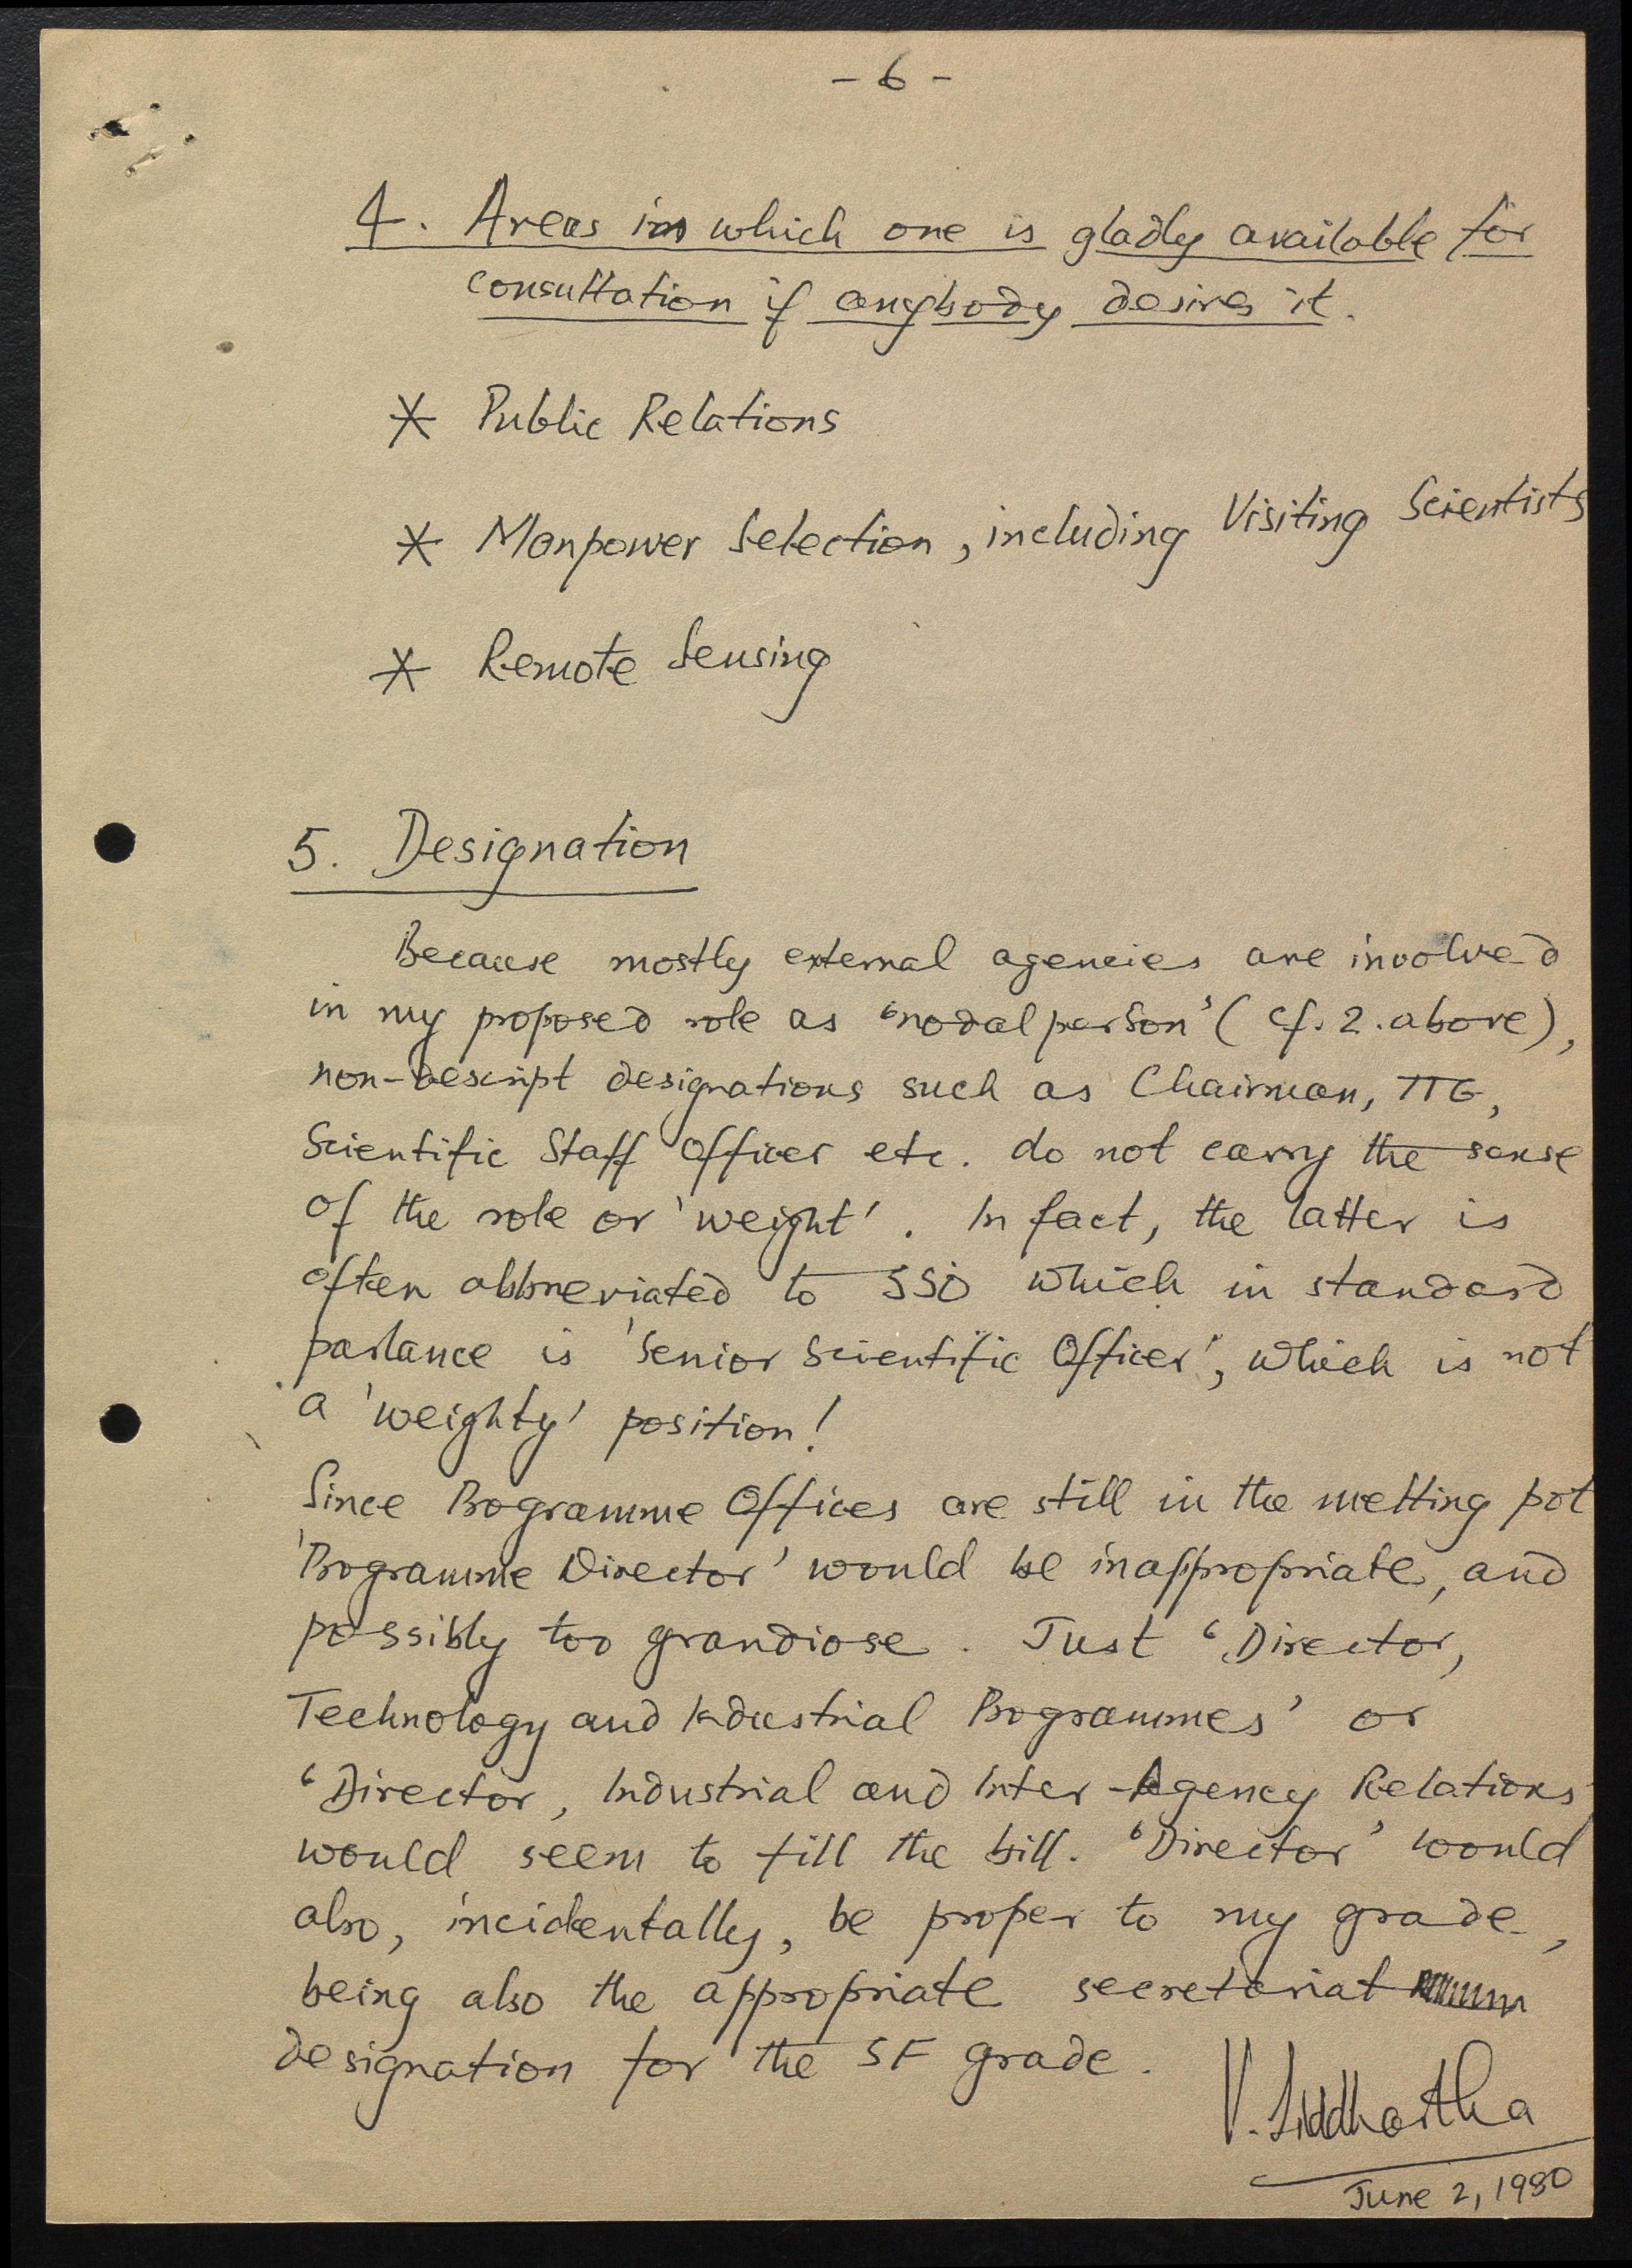 - 6 -
4. Areas in which one is gladly available for
consultation if anybody desires it.
* Public Relations
* Manpower Selection, including Visiting Scientists
* Remote Sensing
5. Designation
Because mostly external agencies are involved
in my proposed role as 'nodal person' (cf. 2. above),
non-descript designations such as Chairman, TTG,
Scientific Staff Officer etc. do not carry the sense
of the role or 'weight'. In fact, the latter is
often abbreviated to SSO which in standard
parlance is 'Senior Scientific Officer', which is not
a 'weighty' position!
Since Programme Offices are still in the melting pot
'Programme Director' would be inappropriate, and
possibly too grandiose. Just 'Director,
Technology and Industrial Programmes' or
'Director, Industrial and Inter-Agency Relations'
would seem to fill the bill. 'Director' would
also, incidentally, be proper to my grade,
being also the appropriate secretariat
designation for the SF grade.
V. Siddhartha
June 2, 1980